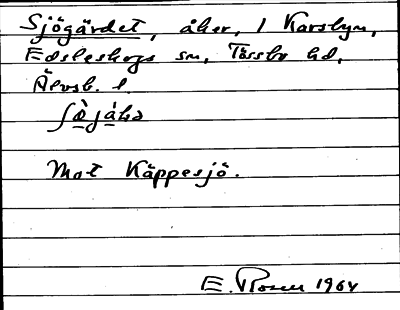 Sjögärdet, åker, 1 Karsbyn,
Edsleskogs sn, Tössbo hd,
Älvsb. l.
Mot Käppesjö.
E. Rosen 1964